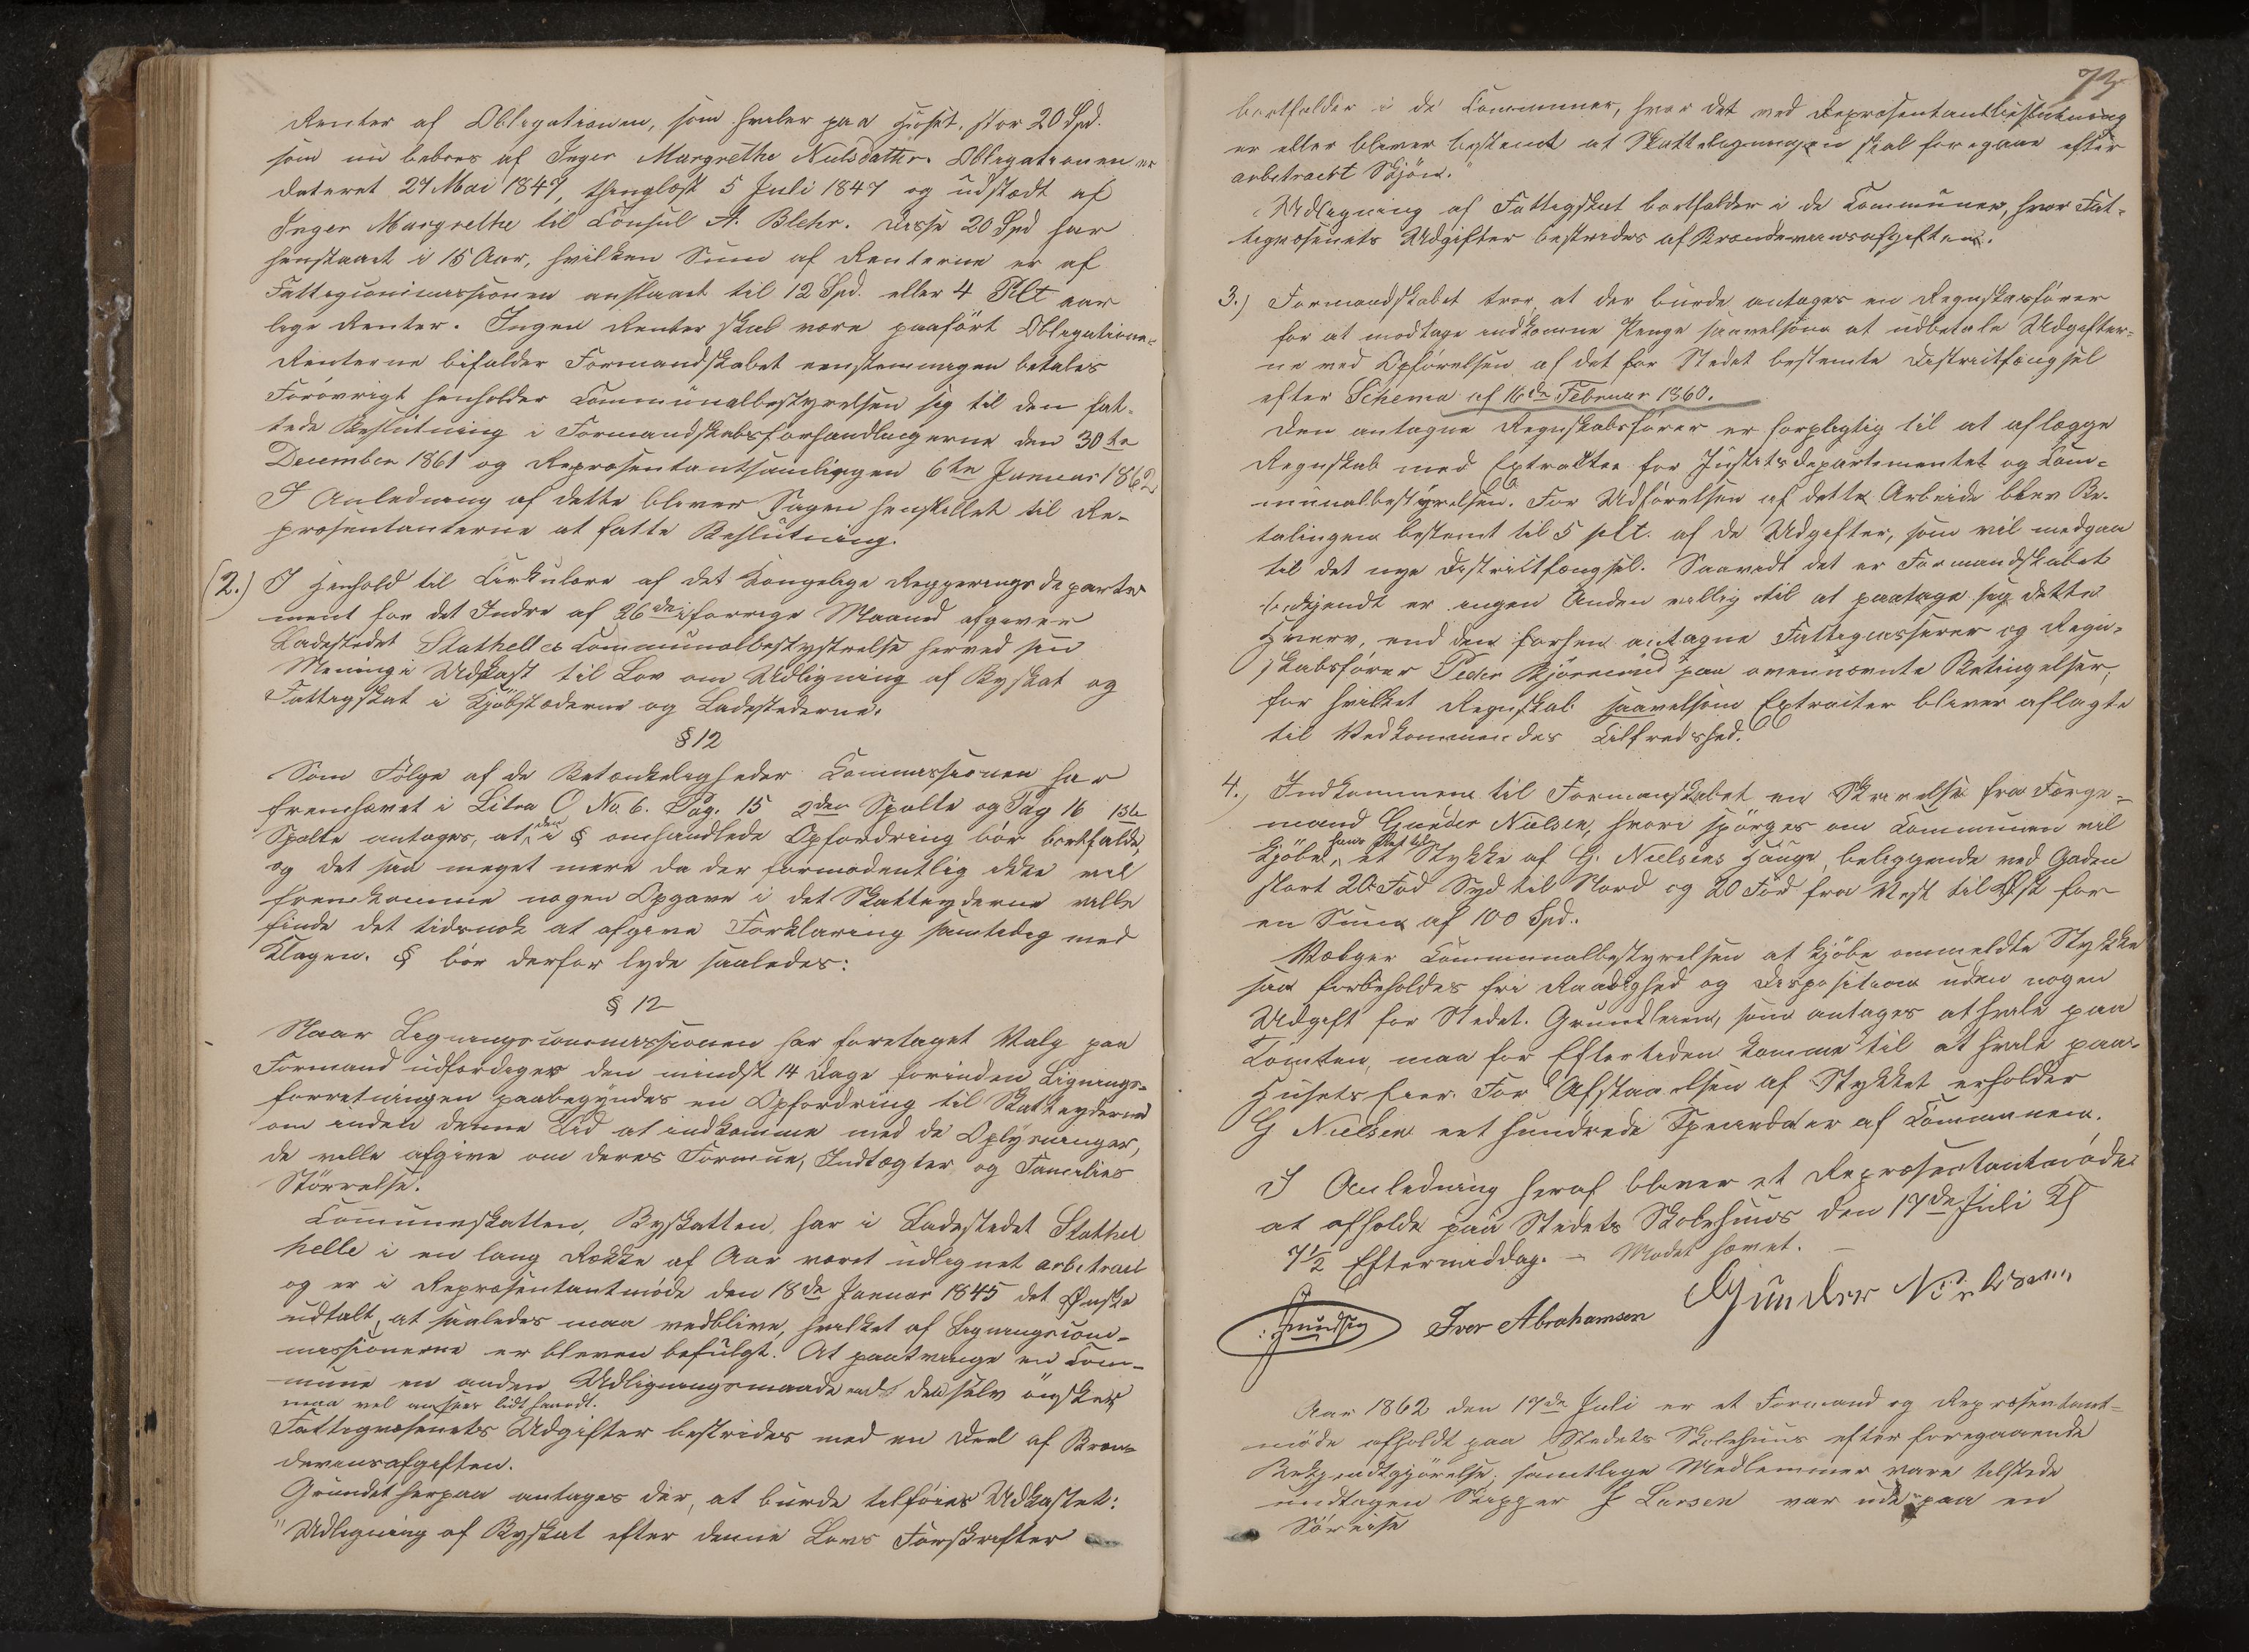 Renter af Obligationen, som hviler paa Huset, stor 20 Spd.
som nu beboes af Inger Margrethe Nielsdatter. Obligationen er
dateret 27 Mai 1847, thinglæst 5 Juli 1847 og udstædt af
Inger Margrethe til Consul A. Blehr. Disse 20 Spd har
henstaaet i 15 Aar, hvilken Sum af Renterne er af
Fattigcommissionen anslaaet til 12 Spd. eller 4 Pct aar
lige Renter. Ingen Renter skal være paaført Obligationen.
Renterne bifalder Formandskabet eenstemmigen betales
Forøvrigt henholder Communalbestyrelsen sig til den fat-
tede Beslutning i Formandskabsforhandlingerne den 30te
December 1861 og Repræsentantsamlingen 6te Januar 1862
I Anledning af dette bliver Sagen henstillet til Re-
præsentanterne at fatte Beslutning.
(2.) I Henhold til Cirkulære af det Kongelige Regjerings departe
ment for det Indre af 26de i forrige Maaned afgiver
Ladestedet Stathelles Communalbestystrelse herved sin
Mening i Udkast til Lov om Udligning af Byskat og
Fattigskat i Kjøbstæderne og Ladestederne.
§ 12
Som Følge af de Betænkeligheder Commissionen har
fremhævet i Litra O No. 6. Pag. 15 2den Spalte og Pag 16 1ste
Spalte antages, at den i § omhandlede Opfordring bør bortfalde,
og det saa meget mere da der formodentlig ikke vil
fremkomme nogen Opgave i det Skatteyderne ville
finde det tidsnok at afgive Forklaring samtidig med
Klagen. § bør derfor lyde saaledes:
§ 12
Naar Ligningscommissionen har foretaget Valg paa
Formand udfærdiges den mindst 14 Dage forinden Lignings-
forretningen paabegyndes en Opfordring til Skatteyderne
om inden denne Tid at indkomme med de Oplysninger,
de ville afgive om deres Formue, Indtægter og Families
Størrelse.
Communeskatten, Byskatten, har i Ladestedet Stathel
helle i en lang Række af Aar været udlignet arbitrair
og er i Repræsentantmøde den 18de Januar 1845 det Ønske
udtalt, at saaledes maa vedblive, hvilket af Ligningscom-
missionerne er bleven befulgt. At paatvinge en Com-
mune en anden Udligningsmaade end den selv ønsker
maa vel ansees lidt haardt.
Fattigvæsenets Udgifter bestrides med en Deel af Bræn-
deviinsafgiften.
Grundet herpaa antages der, at burde tilføies Udkastet:
"Udligning af Byskat efter denne Lovs Forskrifter
73
bortfalder i de Communer, hvor det ved Repræsentantbeslutning
er eller bliver bestemt at Skatteligningen skal foregaae efter
arbitrairt Skjøn."
"Udligning af Fattigskat bortfalder i de Communer, hvor Fat-
tigvæsenets Udgifter bestrides af Brændeviinsafgiften.
3.) Formandskabet tror, at der burde antages en Regnskabsfører
for at modtage indkomne Penge saavelsom at udbetale Udgifter-
ne ved Opførelsen af det for Stedet bestemte Districtsfængsel
efter Schema af 16de Februar 1860.
Den antagne Regnskabsfører er forpligtig til at aflægge
Regnskab med Extracter for Justitsdepartementet og Com-
munalbestyrelsen. For Udførelsen af dette Arbeide blev Be-
talingen bestemt til 5 pCt. af de Udgifter, som vil medgaa
til det nye Districtfængsel. Saavidt det er Formandskabet
bekjendt er ingen Anden villig til at paatage sig dette
Hverv, end den forhen antagne Fattigcasserer og Regn-
skabsfører Peder Bjørnund paa ovennævnte Betingelser,
for hvilket Regnskab saavelsom Extraiter bliver aflagte
til Vedkommendes Tilfredshed.
4., Indkommen til Formanskabet en Skrivelse fra Forge-
mand Gunder Nielsen, hvori spørges om Communen vil
kjøbe et Stykke af G. Nielsens Hauge, beliggende ved Gaden
stort 20 Fod Syd til Nord og 20 Fod fra Vest til Øst for
en Sum af 100 Spd.
Vælger Communalbestyrelsen at kjøbe ommeldte Stykke
saa forbeholdes fri Raadighed og Disposition uden nogen
Udgift for Stedet. Grundleien, som antages at hvile paa
Tomten, maa for Eftertiden komme til at hvile paa
Husets Eier. For Afstaaelsen af Stykket erholder
G Nielsen eet hundrede Speciedaler af Communen.
I Anledning heraf bliver et Repræsentantmøde
at afholde paa Stedets Skolehuus den 17de Juli Kl
7 1/2 Eftermiddag. – Mødet hævet. –
Iver Abrahamsen Gunder Nielsen
Aar 1862 den 17de Juli er et Formand og Repræsentant-
møde afholdt paa Stedets Skolehuus efter foregaaende
Bekjendtgjørelse; samtlige Medlemmer vare tilstede
undtagen Skipper J Larsen var ude paa en
Søreise